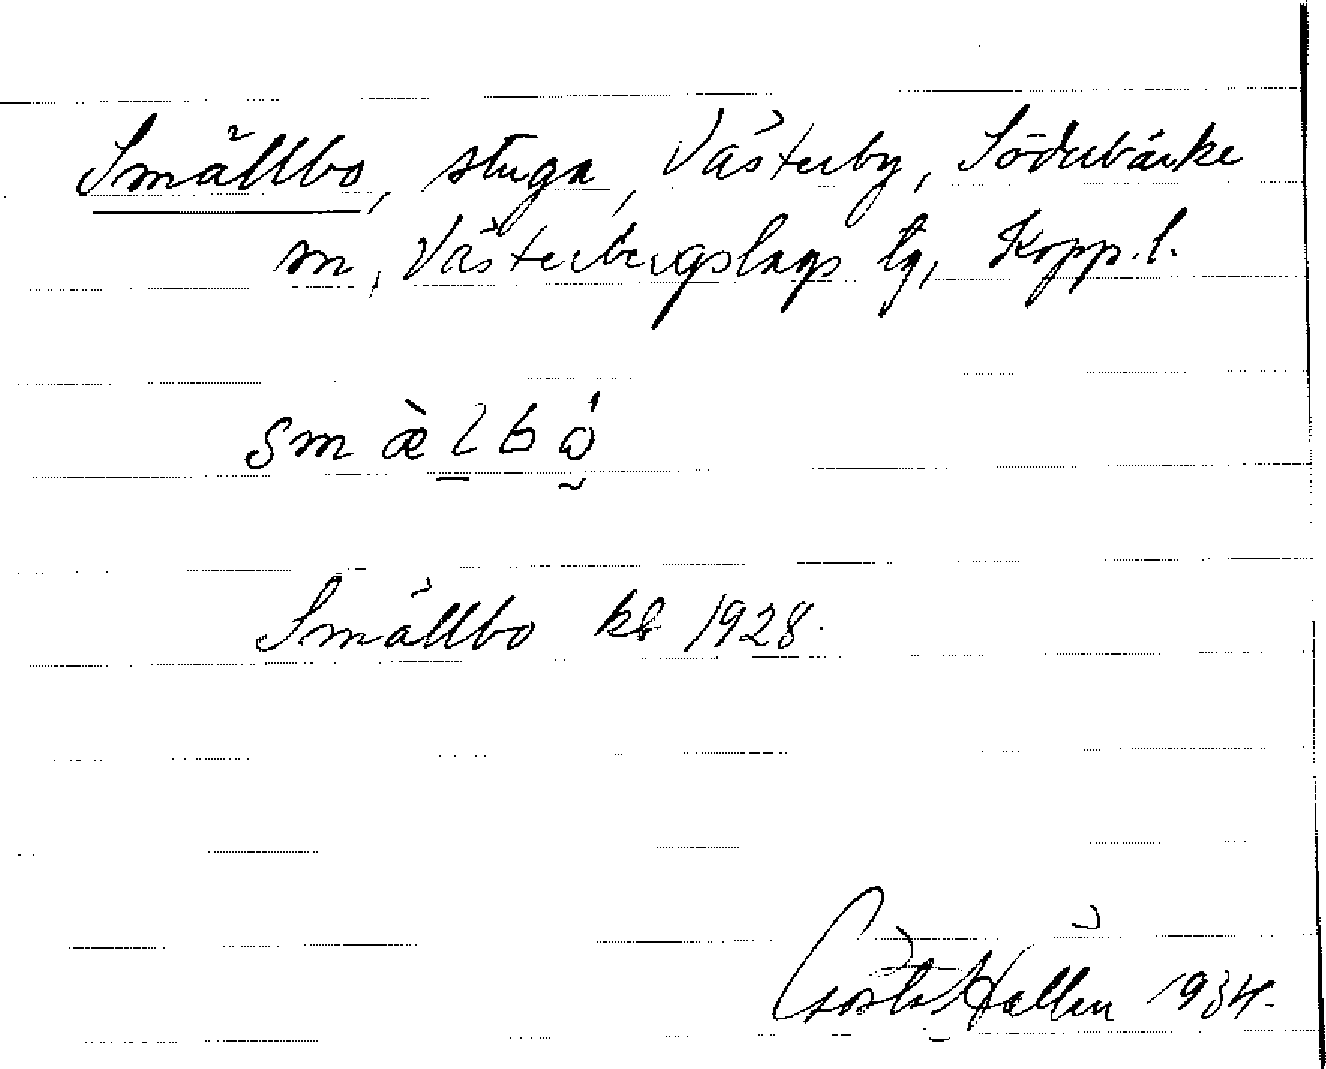 Smällbo, stuga, Västerby, Söderbärke
sn, Västerbergslags tg, Kopp. l.
smæ̀l̠bώ̰
Smällbo kb 1928.
Gösta Hallén 1934.